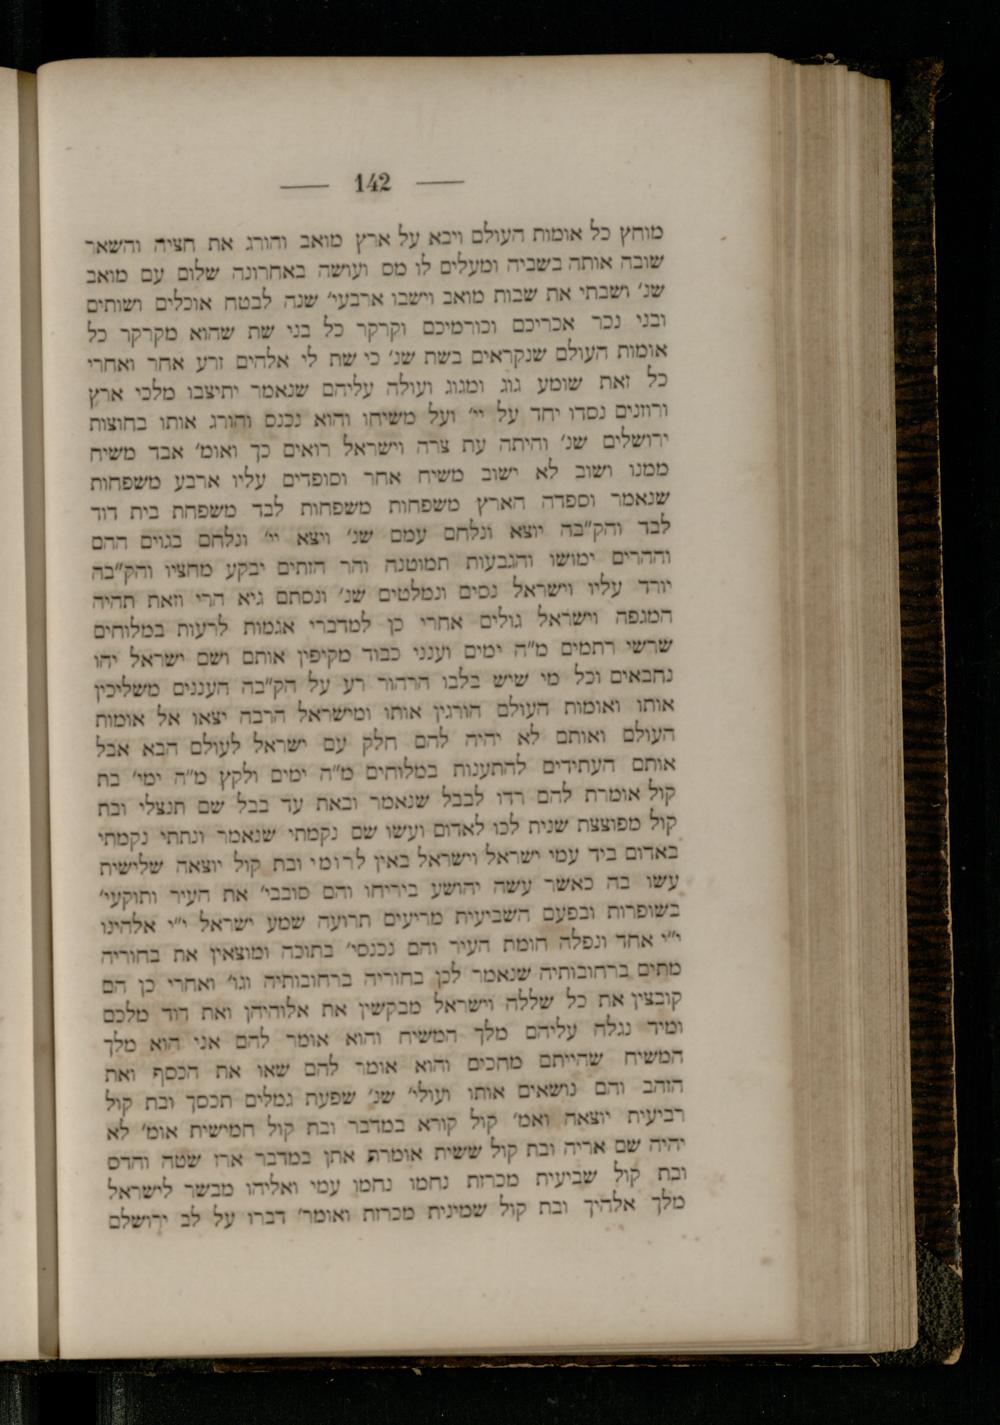 — 142 —
מוחץ כל אומות העולם ויבא על ארץ מואב והורג את חציה והשאר
שובה אותה בשביה ומעלים לו מס ועושה באחרונה שלום עם מואב
שנ׳ ושבתי את שבות מואב וישבו ארבעי׳ שנה לבטח אוכלים ושותים
ובני נכר אכריכם וכורמיכם וקרקר כל בני שת שהוא מקרקר כל
אומות העולם שנקראים בשת שנ׳ כי שת לי אלהים זרע אחר ואחרי
כל זאת שומע גוג ומגוג ועולה עליהם שנאמר יתיצבו מלכי ארץ
ורוזנים נסדו יחד על יי׳ ועל משיחו והוא נכנס והורג אותו בחוצות
ירושלים שנ׳ והיתה עת צרה וישראל רואים כך ואומ׳ אבד משיח
ממנו ושוב לא ישוב משיח אחר וסופדים עליו ארבע משפחות
שנאמר וספדה הארץ משפחות משפחות לבד משפחת בית דוד
לבד והק״בה יוצא ונלחם עמם שנ׳ ויצא יי׳ ונלחם בגוים ההם
וההרים ימושו והגבעות תמוטנה והר הזתים יבקע מחציו והק״בה
יורד עליו וישראל נסים ונמלטים שנ׳ ונסתם גיא הרי וזאת תהיה
המגפה וישראל גולים אחרי כן למדברי אגמות לרעות במלוחים
שרשי רתמים מ״ה ימים וענני כבוד מקיפין אותם ושם ישראל יהו
נחבאים וכל מי שיש בלבו הרהור רע על הק״בה העננים משליכין
אותו ואומות העולם הורגין אותו ומישראל הרבה יצאו אל אומות
העולם ואותם לא יהיה להם חלק עם ישראל לעולם הבא אבל
אותם העתידים להתענות במלוחים מ״ה ימים ולקץ מ״ה ימי׳ בת
קול אומרת להם רדו לבבל שנאמר ובאת עד בבל שם תנצלי ובת
קול מפוצצת שנית לכו לאדום ועשו שם נקמתי שנאמר ונתתי נקמתי
באדום ביד עמי ישראל וישראל באין לרומי ובת קול יוצאה שלישית
עשו בה כאשר עשה יהושע ביריחו והם סובבי׳ את העיר ותוקעי׳
בשופרות ובפעם השביעית מריעים תרועה שמע ישראל י״י אלהינו
י״י אחד ונפלה חומת העיר והם נכנסי׳ בתוכה ומוצאין את בחוריה
מתים ברחובותיה שנאמר לכן בחוריה ברחובותיה וגו׳ ואחרי כן הם
קובצין את כל שללה וישראל מבקשין את אלוהיהן ואת דוד מלכם
ומיד נגלה עליהם מלך המשיח והוא אומר להם אני הוא מלך
המשיח שהייתם מחכים והוא אומר להם שאו את הכסף ואת
הזהב והם נושאים אותו ועולי׳ שנ׳ שפעת גמלים תכסך ובת קול
רביעית יוצאה ואמ׳ קול קורא במדבר ובת קול חמישית אומ׳ לא
יהיה שם אריה ובת קול ששית אומרת אתן במדבר ארז שטה והדס
ובת קול שביעית מכרזת נחמו נחמו עמי ואליהו מבשר לישראל
מלך אלהיך ובת קול שמינית מכרזת ואומר׳ דברו על לב ירושלם